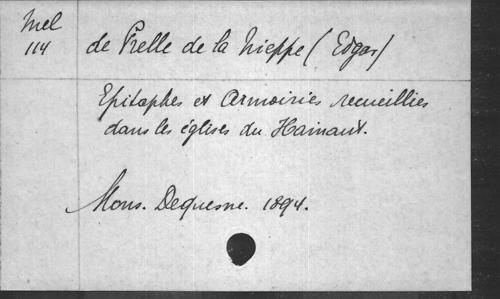 Mel
114
de Prelle de la Nieppe (Edgar)
Epitaphes et Armoiries recueillies
dans les églises du Hainaut.
Mons. Dequesne. 1894.